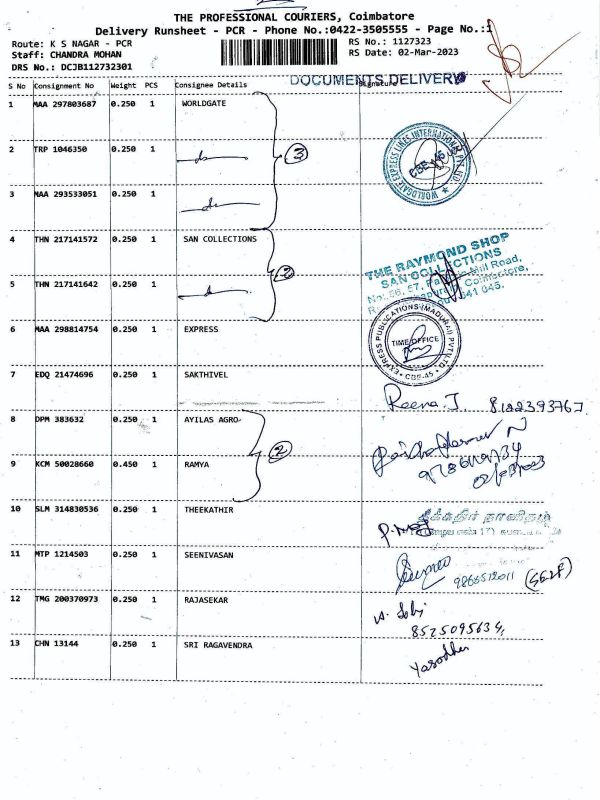 THE PROFESSIONAL COURIERS, Coimbatore
Delivery Runsheet - PCR - Phone No.:0422-3505555 - Page No.:1
Route: K S NAGAR - PCR RS No.: 1127323
Staff: CHANDRA MOHAN RS Date: 02-Mar-2023
DRS No.: DCJB112732301
DOCUMENTS DELIVERY
S No Consignment No Weight PCS Consignee Details Signature
1 MAA 297803687 0.250 1 WORLDGATE
2 TRP 1046350 0.250 1
3
WORLDGATE EXPRESS LINES INTERNATIONAL PVT. LTD.
CBE-45
3 MAA 293533051 0.250 1
4 THN 217141572 0.250 1 SAN COLLECTIONS
2
THE RAYMOND SHOP
SAN COLLECTIONS
Mill Road,
Coimbatore,
641 045.
5 THN 217141642 0.250 1
6 MAA 298814754 0.250 1 EXPRESS
EXPRESS PUBLICATIONS (MADURAI) PVT. LTD.
TIME OFFICE
CBE-45
7 EDQ 21474696 0.250 1 SAKTHIVEL
Reena. J. 8122393767
8 DPM 383632 0.250 1 AYILAS AGRO
2
9 KCM 50028660 0.450 1 RAMYA
10 SLM 314830536 0.250 1 THEEKATHIR
தீக்கதிர் நாளிதழ்
11 MTP 1214503 0.250 1 SEENIVASAN
12 TMG 200370973 0.250 1 RAJASEKAR
8525095634
13 CHN 13144 0.250 1 SRI RAGAVENDRA
Yasodha